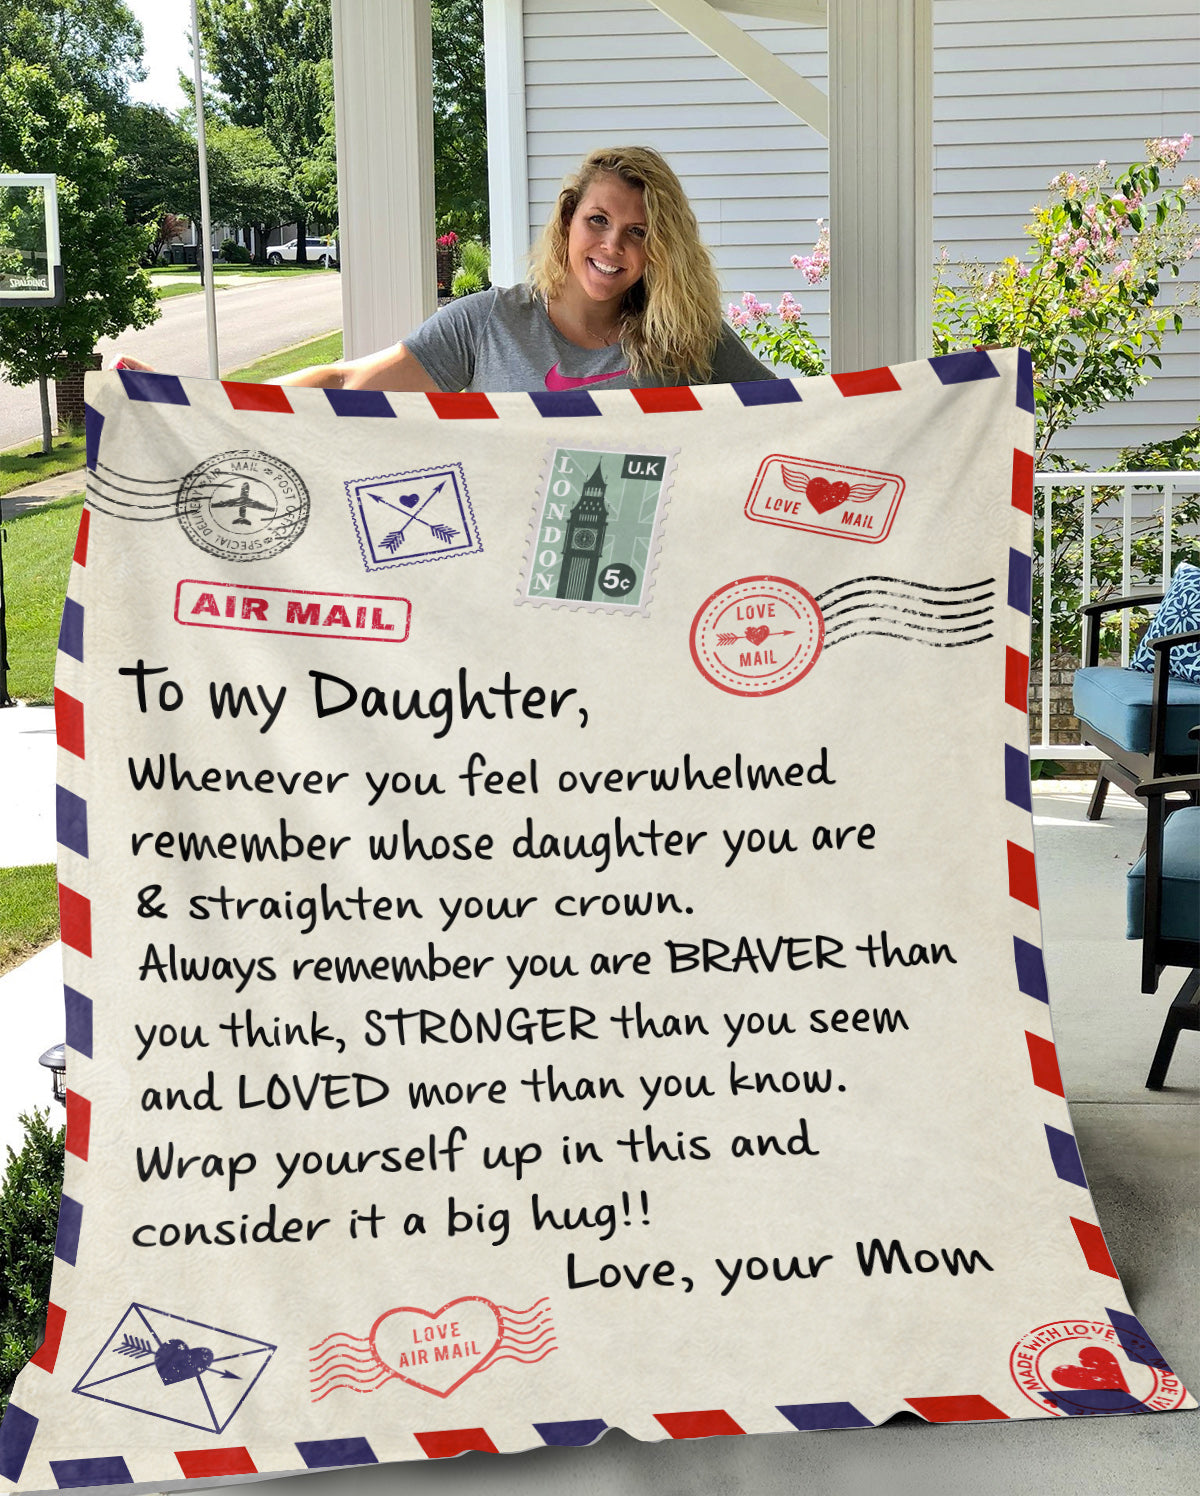 SPALDING
SPECIAL DELIVERY AIR MAIL POST OFFICE
LONDON
U.K
5¢
LOVE MAIL
AIR MAIL
LOVE
MAIL
To my Daughter,
Whenever you feel overwhelmed
remember whose daughter you are
& straighten your crown.
Always remember you are BRAVER than
you think, STRONGER than you seem
and LOVED more than you know.
Wrap yourself up in this and
consider it a big hug!!
Love, your Mom
LOVE
AIR MAIL
MADE WITH LOVE